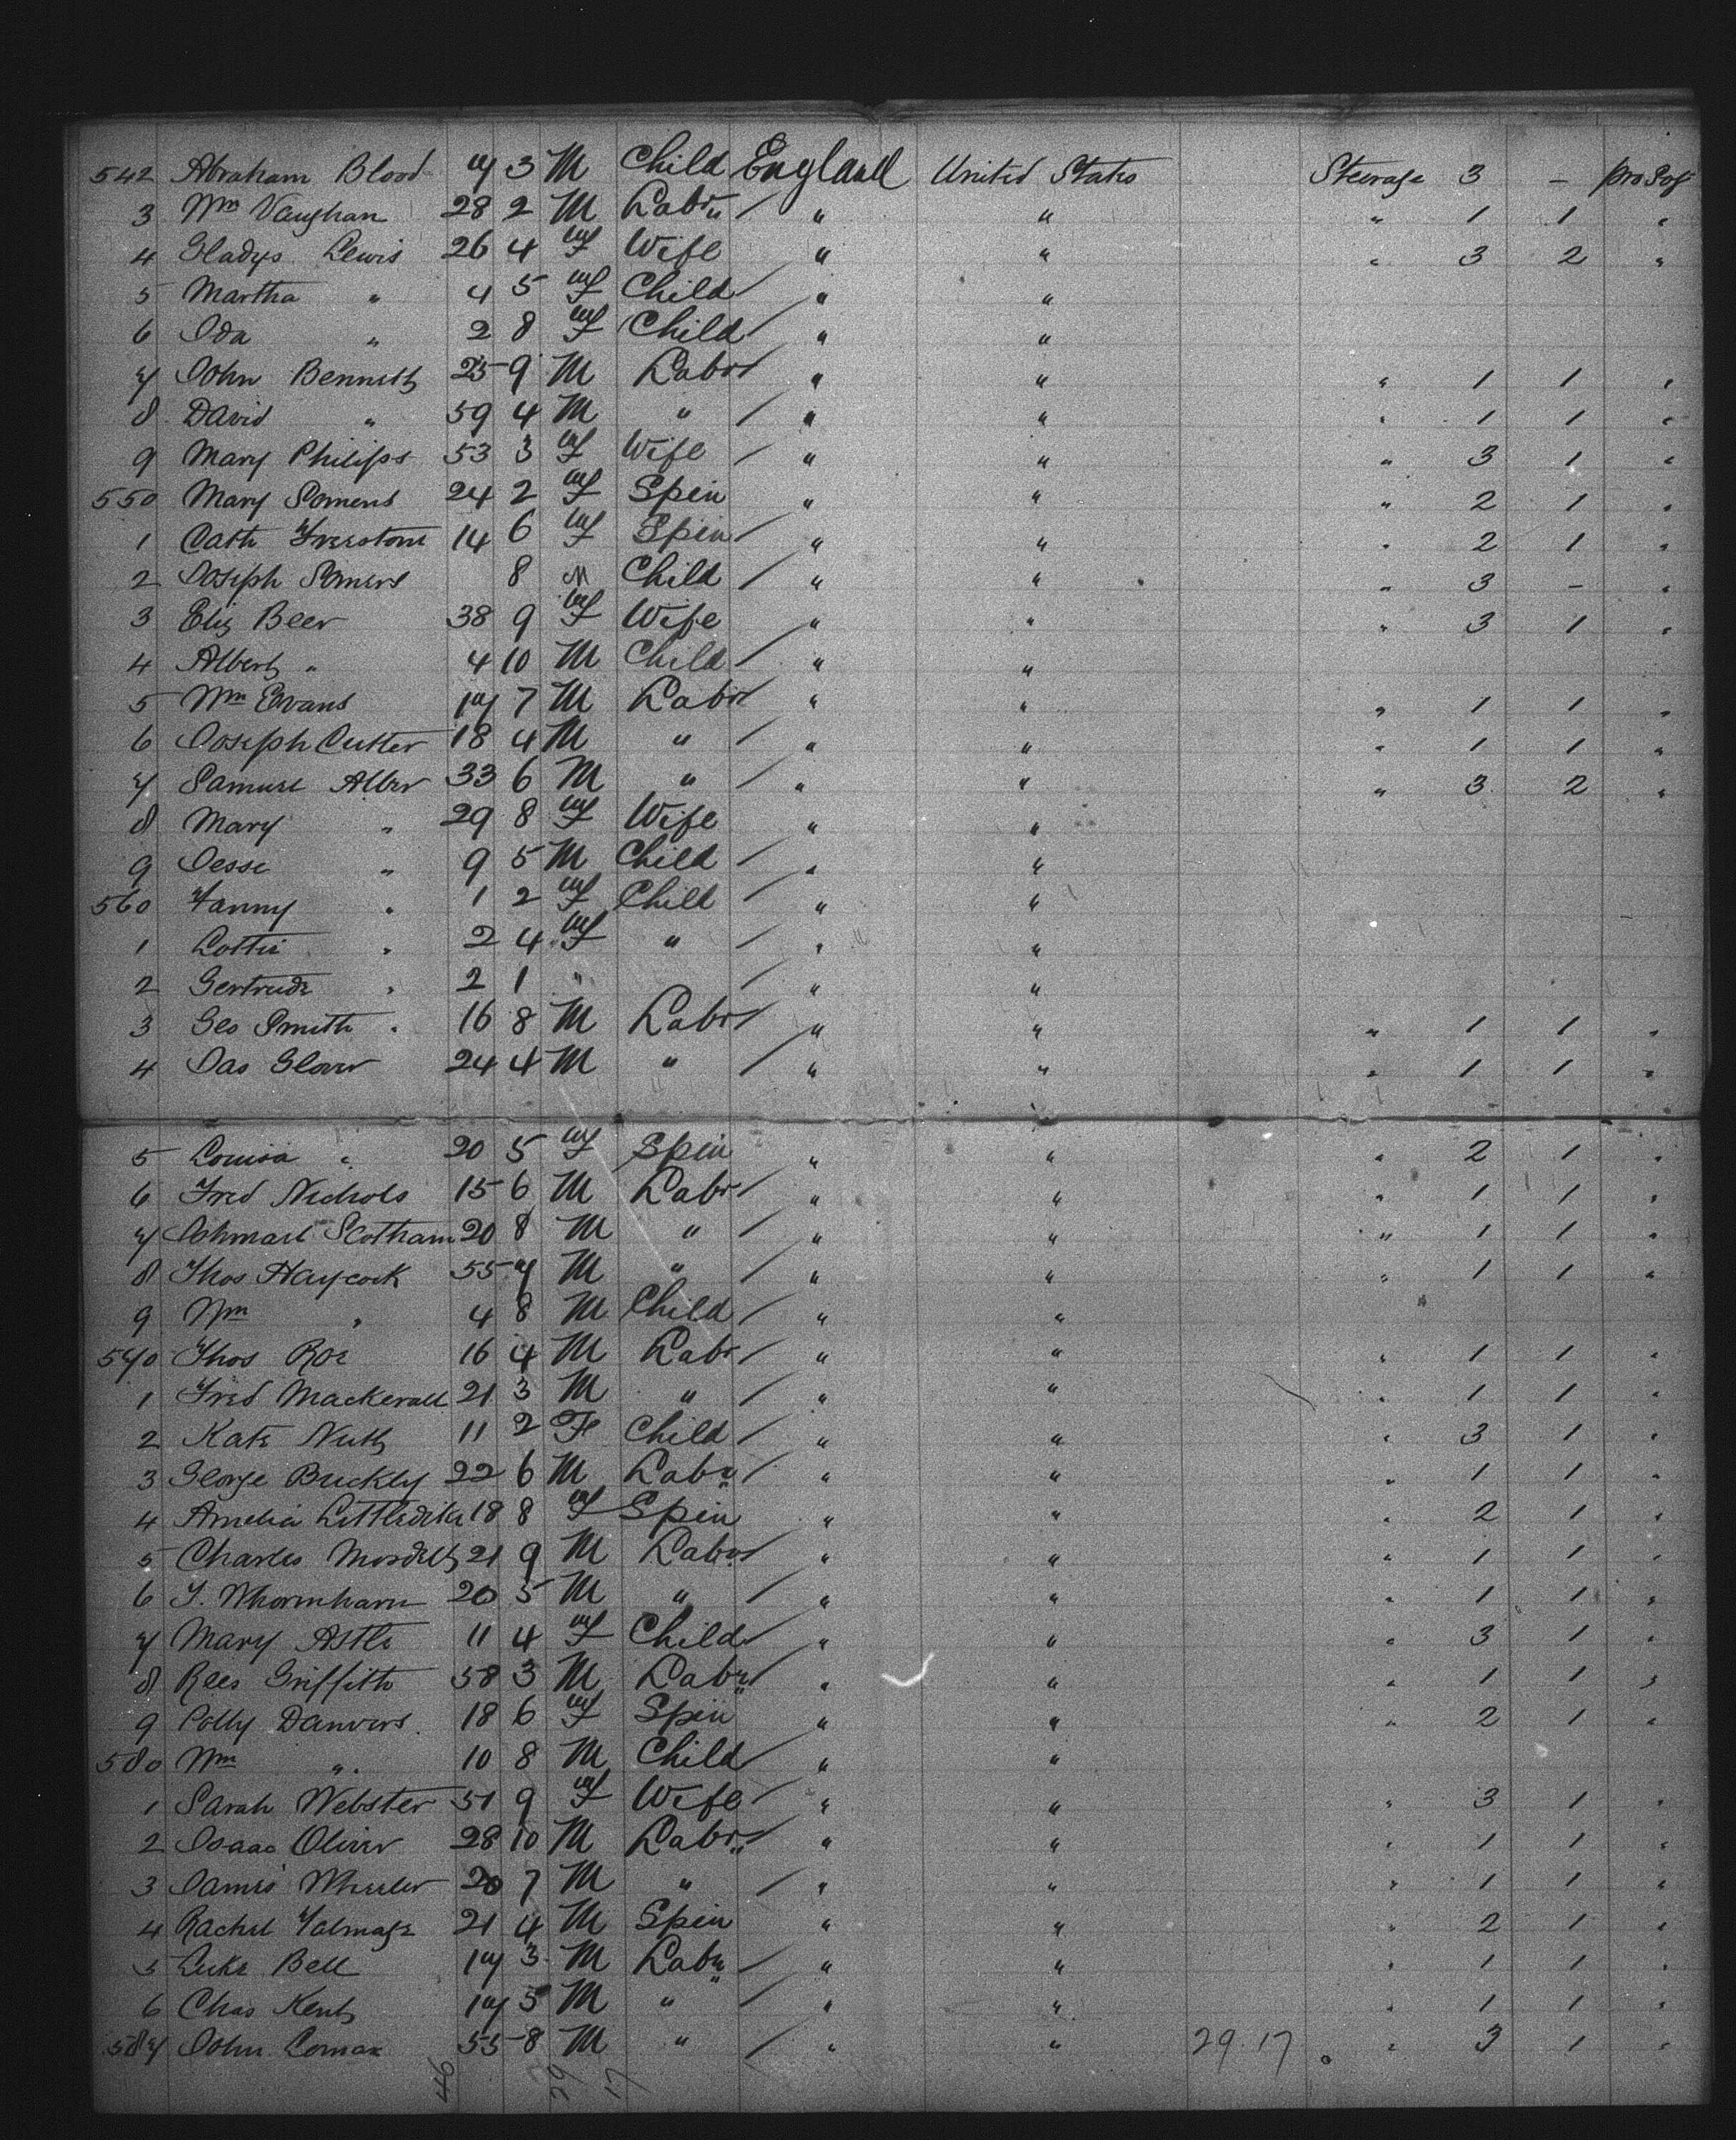 542 Abraham Blood 7 3 M Child England United States Steerage 3 – pro Soj
3 Wm Vaughan 28 2 M Labr " / " " " 1 1 "
4 Gladys Lewis 26 4 F Wife " " " 3 2 "
5 Martha " 4 5 F Child / " "
6 Ida " 2 8 F Child / " "
7 John Bennett 25 9 M Labr / " " " 1 1 "
8 David " 59 4 M " / " " " 1 1 "
9 Mary Philips 53 3 F Wife / " " " 3 1 "
550 Mary Somers 24 2 F Spin " " " 2 1 "
1 Cath Freestone 14 6 F Spin / " " " 2 1 "
2 Joseph Somers 8 M Child / " " " 3 – "
3 Eliz Beer 38 9 F Wife " " " 3 1 "
4 Albert " 4 10 M Child / " "
5 Wm Evans 17 7 M Labr " " " 1 1 "
6 Joseph Cutter 18 4 M " / " " " 1 1 "
7 Samuel Alber 33 6 M " / " " " 3 2 "
8 Mary " 29 8 F Wife " "
9 Jesse " 9 5 M Child / " "
560 Fanny " 1 2 F Child / " "
1 Lottie " 2 4 F " / " "
2 Gertrude " 2 1 " / " "
3 Geo Smith " 16 8 M Labr / " " " 1 1 "
4 Jas Glover 24 4 M " / " " " 1 1 "
5 Louisa " 20 5 F Spin " " " 2 1 "
6 Fred Nichols 15 6 M Labr / " " " 1 1 "
7 Scotham 20 8 M " / " " " 1 1 "
8 Thos Haycock 55 7 M " / " " " 1 1 "
9 Wm " 4 8 M Child / " "
570 Thos Roe 16 4 M Labr / " " " 1 1 "
1 Fred Mackerall 21 3 M " / " " " 1 1 "
2 Kate Nutt 11 2 Fe Child / " " " 3 1 "
3 George Buckly 22 6 M Labr / " " " 1 1 "
4 Amelia 18 8 F Spin " " " 2 1 "
5 Charles 21 9 M Labr / " " " 1 1 "
6 20 5 M " / " " " 1 1 "
7 Mary Astle 11 4 F Child / " " " 3 1 "
8 Rees Griffith 58 3 M Labr / " " " 1 1 "
9 Polly Danvers 18 6 F Spin " " " 2 1 "
580 Wm " 10 8 M Child / " "
1 Sarah Webster 51 9 F Wife / " " " 3 1 "
2 Isaac Oliver 28 10 M Labr / " " " 1 1 "
3 James Wheeler 20 7 M " / " " " 1 1 "
4 Rachel Talmage 21 4 M Spin " " " 2 1 "
5 Luke Bell 17 3 M Labr / " " " 1 1 "
6 Chas Kent 17 5 M " / " " " 1 1 "
587 John Lomax 55 8 M " / " " 29.17 " 3 1 "